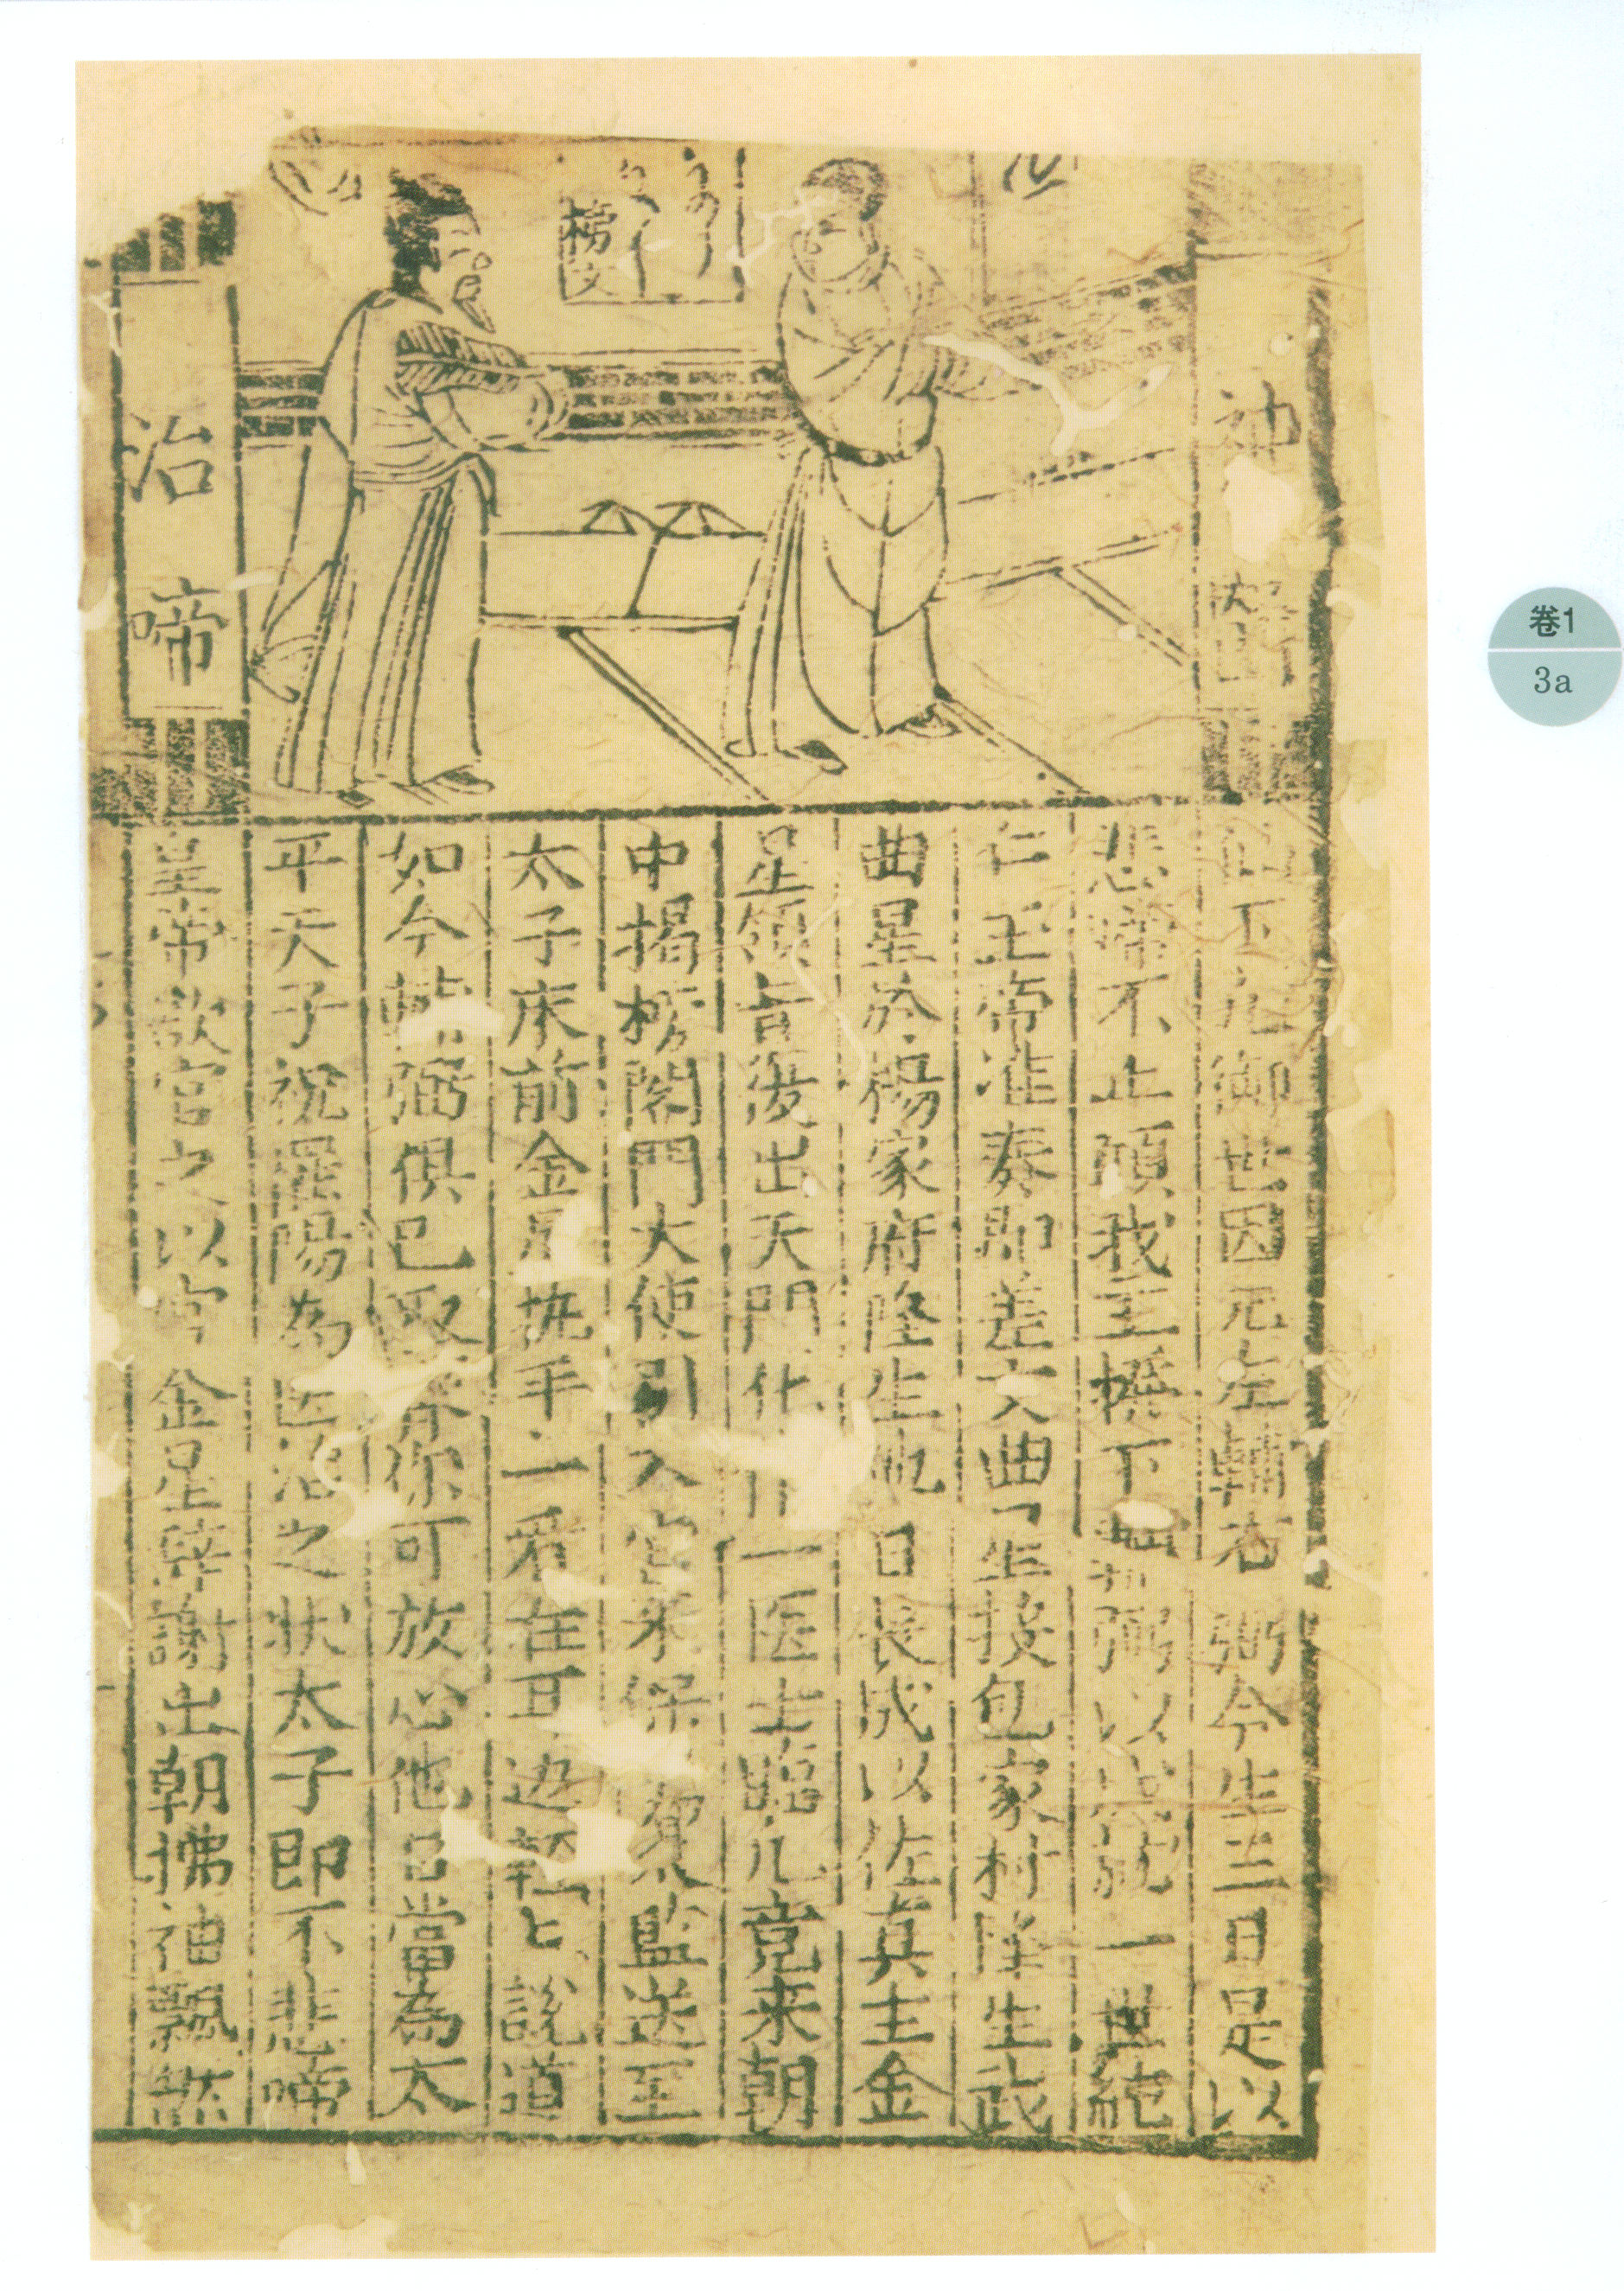 神
治啼
榜文
臣下九御世因无左輔右弼今生三日是以
悲啼不止碩我王掫下輔弼以成就一世統
仁王帝准奏即差文曲星投包家村隆生武
曲星於楊家府隆生他日長成以佐真主金
星領旨復出天門化作一医士臨凡竟来朝
中揭榜閣門大使引入宮来保架監送至
太子床前金星执手一看在耳边輕乚說道
如今輔弼俱已取齐你可放心他日當為太
平天子祝罷陽為医治之狀太子即不悲啼
皇帝欲官之以官金星辞謝出朝拂袖飄然
卷1
3a